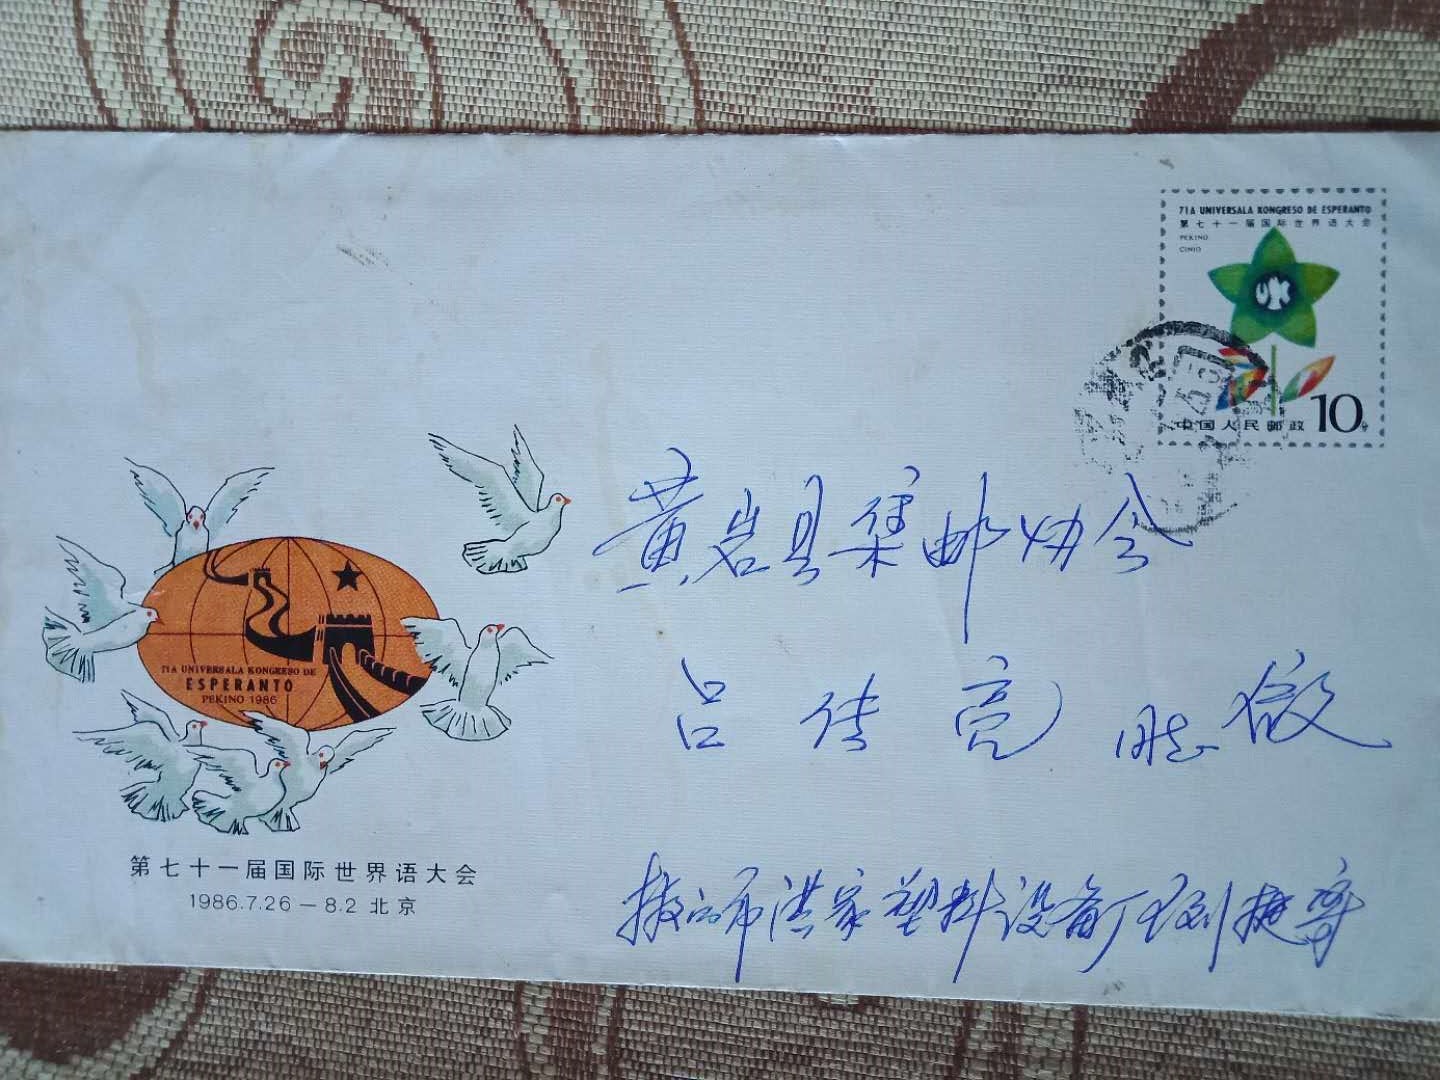 71A UNIVERSALA KONGRESO DE ESPERANTO
第七十一届国际世界语大会
PEKINO
CINIO
中国人民邮政 10分
黄岩县集邮协会
吕传亮 同志 收
71A UNIVERSALA KONGRESO DE
ESPERANTO
PEKINO 1986
第七十一届国际世界语大会
1986.7.26－8.2 北京
洪家塑料设备厂 寄